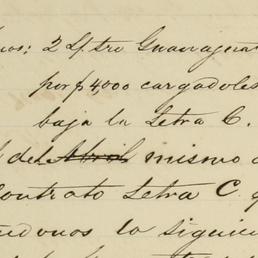 nos: 2 Lf tro Guanagua
por $ 4000 cargadoles
baja la Letra C.
del Abril mismo a
Contrato Letra C. q
uedonos lo siguien